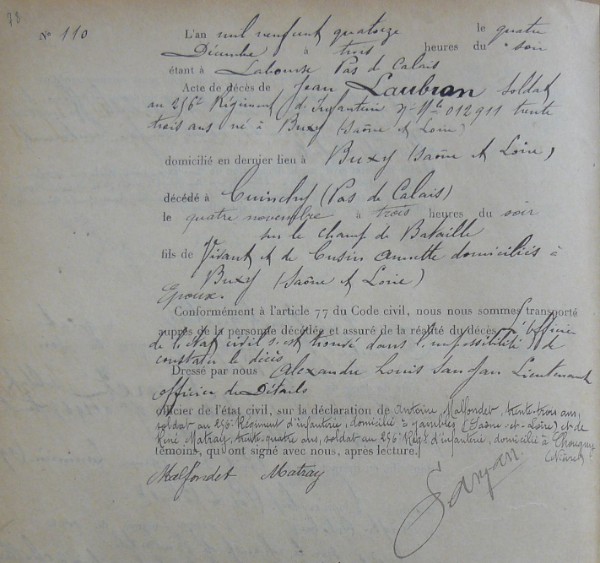 73
N° 110
L'an mil neuf cent quatorze le quatre
Décembre à trois heures du soir
étant à Labourse Pas de Calais
Acte de décès de Jean Laubran soldat
au 256e Régiment d'Infanterie No Mle 012911 trente
trois ans né à Buxy (Saône et Loire)
domicilié en dernier lieu à Buxy (Saône et Loire)
décédé à Cuinchy (Pas de Calais)
le quatre novembre à trois heures du soir
sur le champ de Bataille
fils de Vivant et de Cusin Annette domiciliés à
Buxy (Saône et Loire)
Epoux.
Conformément à l'article 77 du Code civil, nous nous sommes transporté
auprès de la personne décédée et assuré de la réalité du décès. L'officier
de l'état civil s'est trouvé dans l'impossibilité de
constater le décès
Dressé par nous Alexandre Louis Sanjan Lieutenant
officier des Détails
officier de l'état civil, sur la déclaration de Antoine Malfondet, trente-trois ans,
soldat au 256e Régiment d'infanterie, domicilié à (Saône-et-Loire) et de
René Matray, trente-quatre ans, soldat au 256e Régt d'infanterie, domicilié à
témoins, qui ont signé avec nous, après lecture.
Malfondet Matray
Sanjan